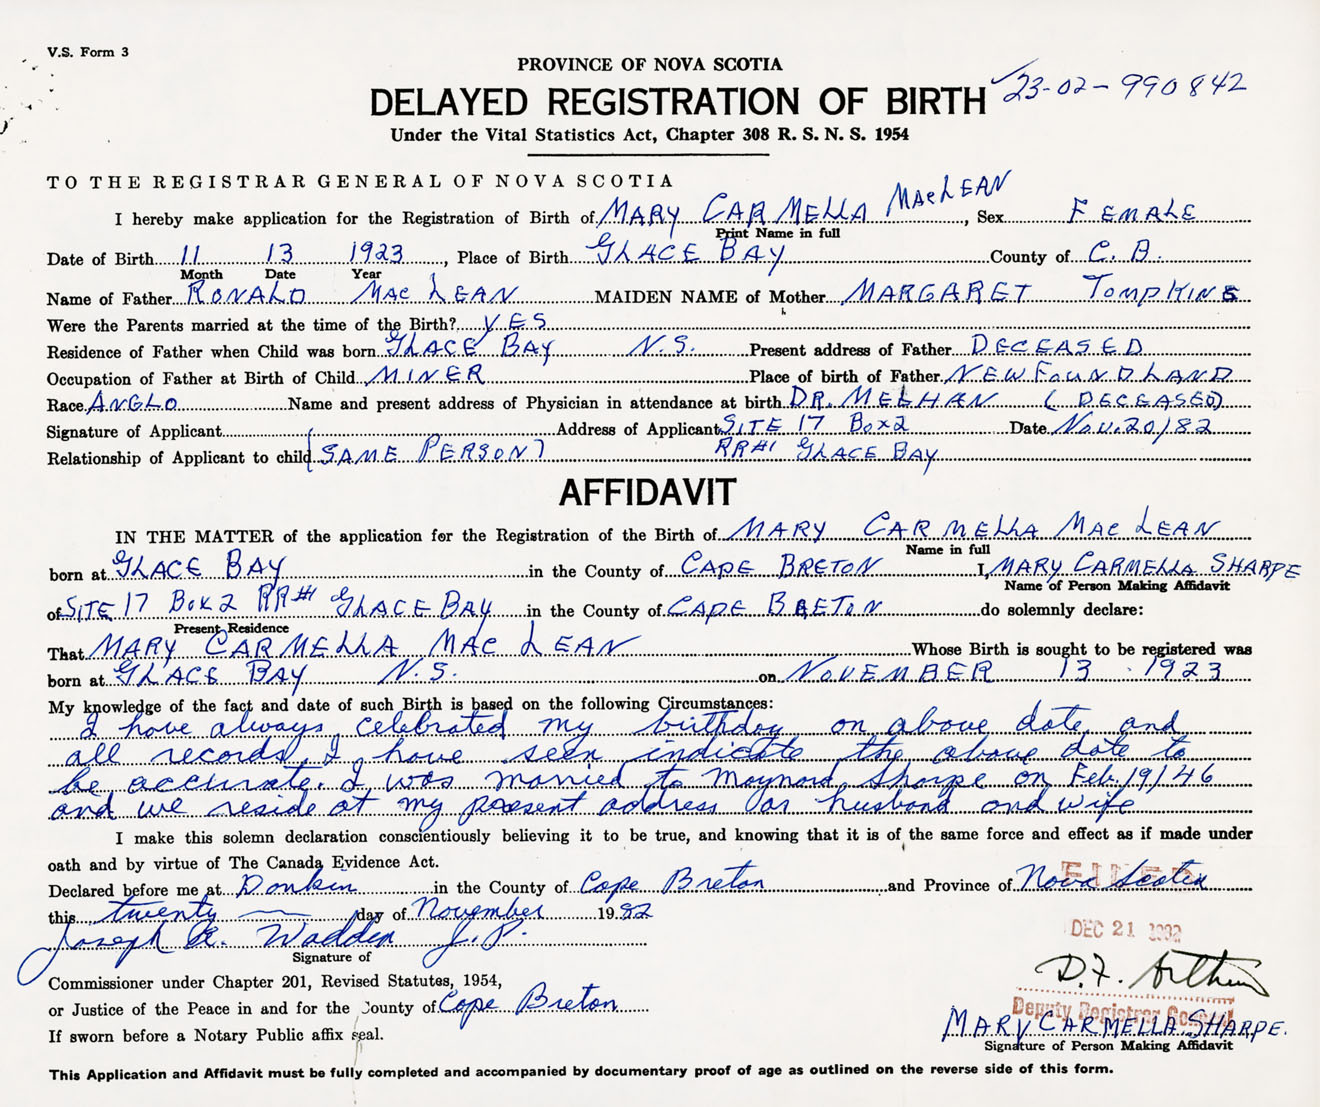 V.S. Form 3
PROVINCE OF NOVA SCOTIA
DELAYED REGISTRATION OF BIRTH 23-02-990842
Under the Vital Statistics Act, Chapter 308 R. S. N. S. 1954
TO THE REGISTRAR GENERAL OF NOVA SCOTIA
I hereby make application for the Registration of Birth of MARY CARMELLA MacLEAN, Sex FEMALE
Print Name in full
Date of Birth 11 13 1923, Place of Birth GLACE BAY County of C.B.
Month Date Year
Name of Father RONALD MacLEAN MAIDEN NAME of Mother MARGARET TOMPKINS
Were the Parents married at the time of the Birth? YES
Residence of Father when Child was born GLACE BAY N.S. Present address of Father DECEASED
Occupation of Father at Birth of Child MINER Place of birth of Father NEWFOUNDLAND
Race ANGLO Name and present address of Physician in attendance at birth DR. MELHAN (DECEASED)
Signature of Applicant Address of Applicant SITE 17 Box 2 Date Nov. 20/82
Relationship of Applicant to child (SAME PERSON) RR#1 GLACE BAY
AFFIDAVIT
IN THE MATTER of the application for the Registration of the Birth of MARY CARMELLA MacLEAN
Name in full
born at GLACE BAY in the County of CAPE BRETON I, MARY CARMELLA SHARPE
Name of Person Making Affidavit
of SITE 17 BOX 2 RR#1 GLACE BAY in the County of CAPE BRETON do solemnly declare:
Present Residence
That MARY CARMELLA MacLEAN Whose Birth is sought to be registered was
born at GLACE BAY N.S. on NOVEMBER 13 1923
My knowledge of the fact and date of such Birth is based on the following Circumstances:
I have always celebrated my birthday on above date and
all records I have seen indicate the above date to
be accurate. I was married to Maynard Sharpe on Feb. 19/46
and we reside at my present address as husband and wife
I make this solemn declaration conscientiously believing it to be true, and knowing that it is of the same force and effect as if made under
oath and by virtue of The Canada Evidence Act.
Declared before me at Donkin in the County of Cape Breton and Province of Nova Scotia
FILED
this twenty day of November 1982
Joseph A. Wadden J.P.
DEC 21 1982
Signature of
D.F. Arthur
Commissioner under Chapter 201, Revised Statutes, 1954,
or Justice of the Peace in and for the County of Cape Breton
Deputy Registrar General
MARY CARMELLA SHARPE.
If sworn before a Notary Public affix seal.
Signature of Person Making Affidavit
This Application and Affidavit must be fully completed and accompanied by documentary proof of age as outlined on the reverse side of this form.